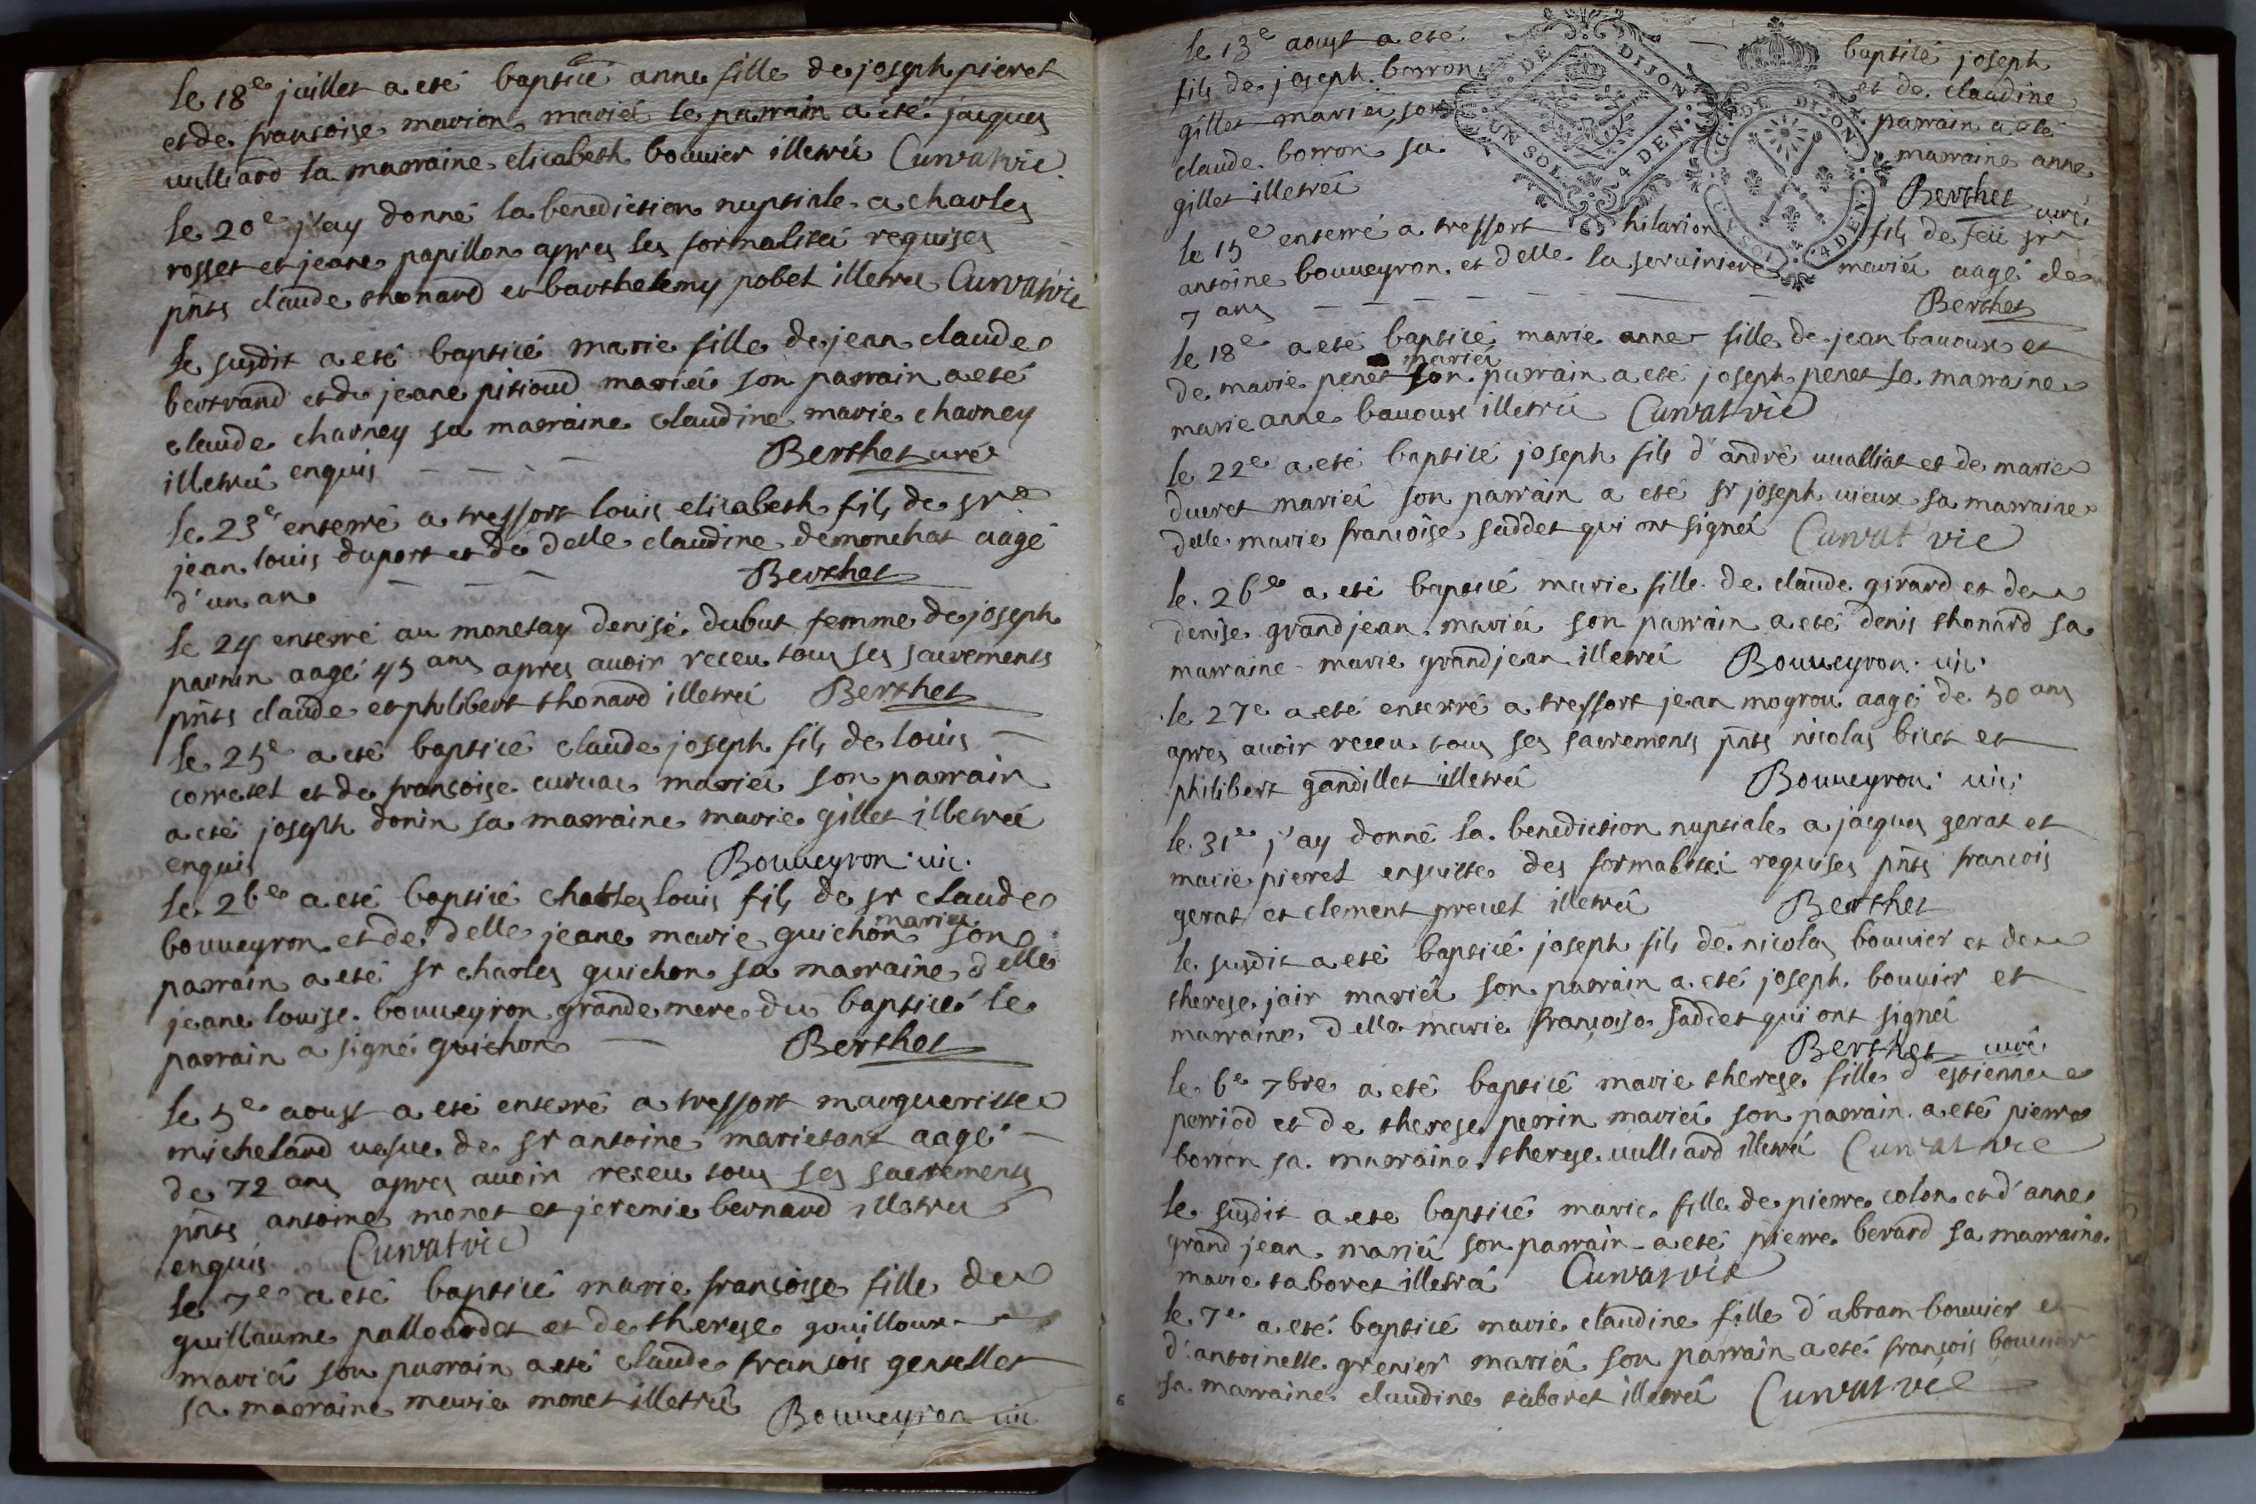 le 18e juillet a eté baptisé anne fille de joseph pieret
et de francoise marion mariéz le parrain a été jaques
vulliard la marraine elisabeth bouvier illetréz Curvat vic
le 20e j'ay donné la benediction nuptiale a charles
rosset et jeane papillon apres les formalitéz requises
pnts claude thonard et barthelemy pobel illetréz Curvat vic
le susdit a eté baptisé marie fille de jean claude
bertrand et de jeane pitioud mariéz son parrain a eté
claude charney sa marraine claudine marie charney
illetréz enquis Berthet curé
le 23e enterré a treffort louis elisabeth fils de sr
jean louis duport et de delle claudine demonchat aagé
d'un an Berthet
le 24 enterré au monetay denise dubut femme de joseph
parnin aagé 45 ans apres avoir receu tous ses sacrements
pnts claude et philibert thonard illetréz Berthet
le 25e a eté baptisé claude joseph fils de louis
corretel et de francoise curvat mariéz son parrain
a eté joseph donin sa marraine marie gillet illetréz
enquis Bouveyron vic.
le 26e a eté baptisé charles louis fils de sr claude
bouveyron et de delle jeane marie guichon mariéz son
parrain a eté sr charles guichon sa marraine delle
jeane louise bouveyron grande mere du baptisé le
parrain a signé guichon Berthet
le 5e aoust a eté enterré a treffort margueritte
michelard vefve de sr antoine marietant aagé
de 72 ans apres avoir receu tous ses sacrements
pnts antoine monet et jeremie bernard illetréz
enquis Curvat vic
le 7e a eté baptisé marie francoise fille de
guillaume palloudet et de therese gouilloux
mariéz son parrain a eté claude francois gentellet
sa marraine marie monet illetréz Bouveyron vic
le 13e aoust a eté baptisé joseph
fils de joseph borron et de claudine
gillet mariéz son parrain a eté
claude borron sa marraine anne
gillet illetréz Berthet curé
G. DE DIJON
UN SOL 4 DEN.
G. DE DIJON
1 SOL 4 DEN.
le 15e enterré a treffort hilarion fils de feu sr
antoine bouveyron et delle la serviniere mariéz aagé de
7 ans Berthet
le 18e a eté baptisé marie anne fille de jean bavoux et
de marie penet mariéz son parrain a eté joseph penet sa marraine
marie anne bavoux illetréz Curvat vic
le 22e a eté baptisé joseph fils d'andré vualliat et de marie
ducret mariéz son parrain a eté sr joseph vieux sa marraine
delle marie francoise saddet qui ont signéz Curvat vic
le 26e a eté baptisé marie fille de claude girard et de
denise grandjean mariéz son parrain a eté denis thonard sa
marraine marie grandjean illetréz Bouveyron vic.
le 27e a eté enterré a treffort jean mogrou aagé de 50 ans
apres avoir receu tous ses sacrements pnts nicolas bicet et
philibert gandillet illetréz Bouveyron vic.
le 31e j'ay donné la benediction nuptiale a jacques gerat et
marie pieret ensuitte des formalitéz requises pnts francois
gerat et clement prevet illetréz Berthet
le susdit a eté baptisé joseph fils de nicolas bouvier et de
therese jair mariéz son parrain a eté joseph bouvier et
marraine delle marie françoise saddet qui ont signéz
Berthet curé
le 6e 7bre a eté baptisé marie therese fille d'estienne
perriod et de therese perrin mariéz son parrain a eté pierre
borron sa marraine therese vulliard illetréz Curvat vic
le susdit a ete baptisé marie fille de pierre colon et d'anne
grand jean mariéz son parrain a eté pierre berard sa marraine
marie taboret illetréz Curvat vic
le 7e a eté baptisé marie claudine fille d'abram bouvier et
d'antoinette grenier mariéz son parrain a eté francois bouvier
sa marraine claudine taboret illetréz Curvat vic